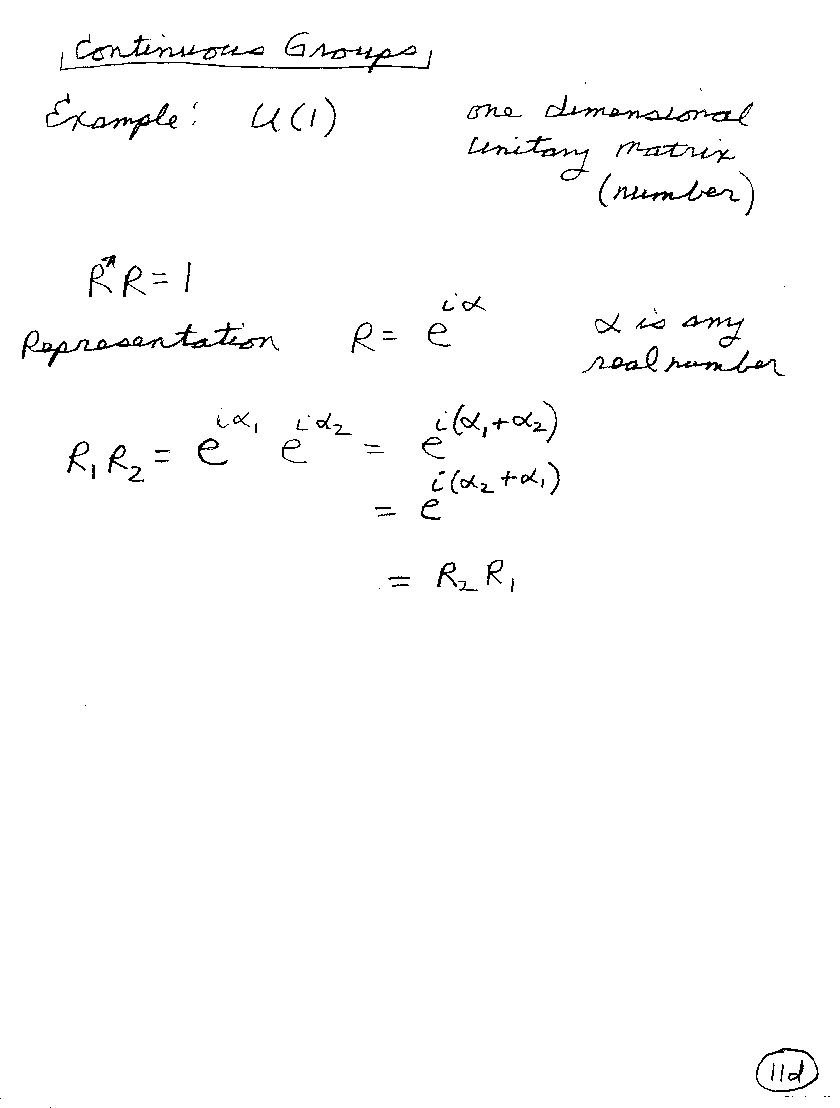 Continuous Groups
Example: U(1) one dimensional
unitary matrix
(number)
R*R = 1
Representation R = e^{iα} α is any
real number
R₁R₂ = e^{iα₁} e^{iα₂} = e^{i(α₁+α₂)}
= e^{i(α₂+α₁)}
= R₂R₁
11d